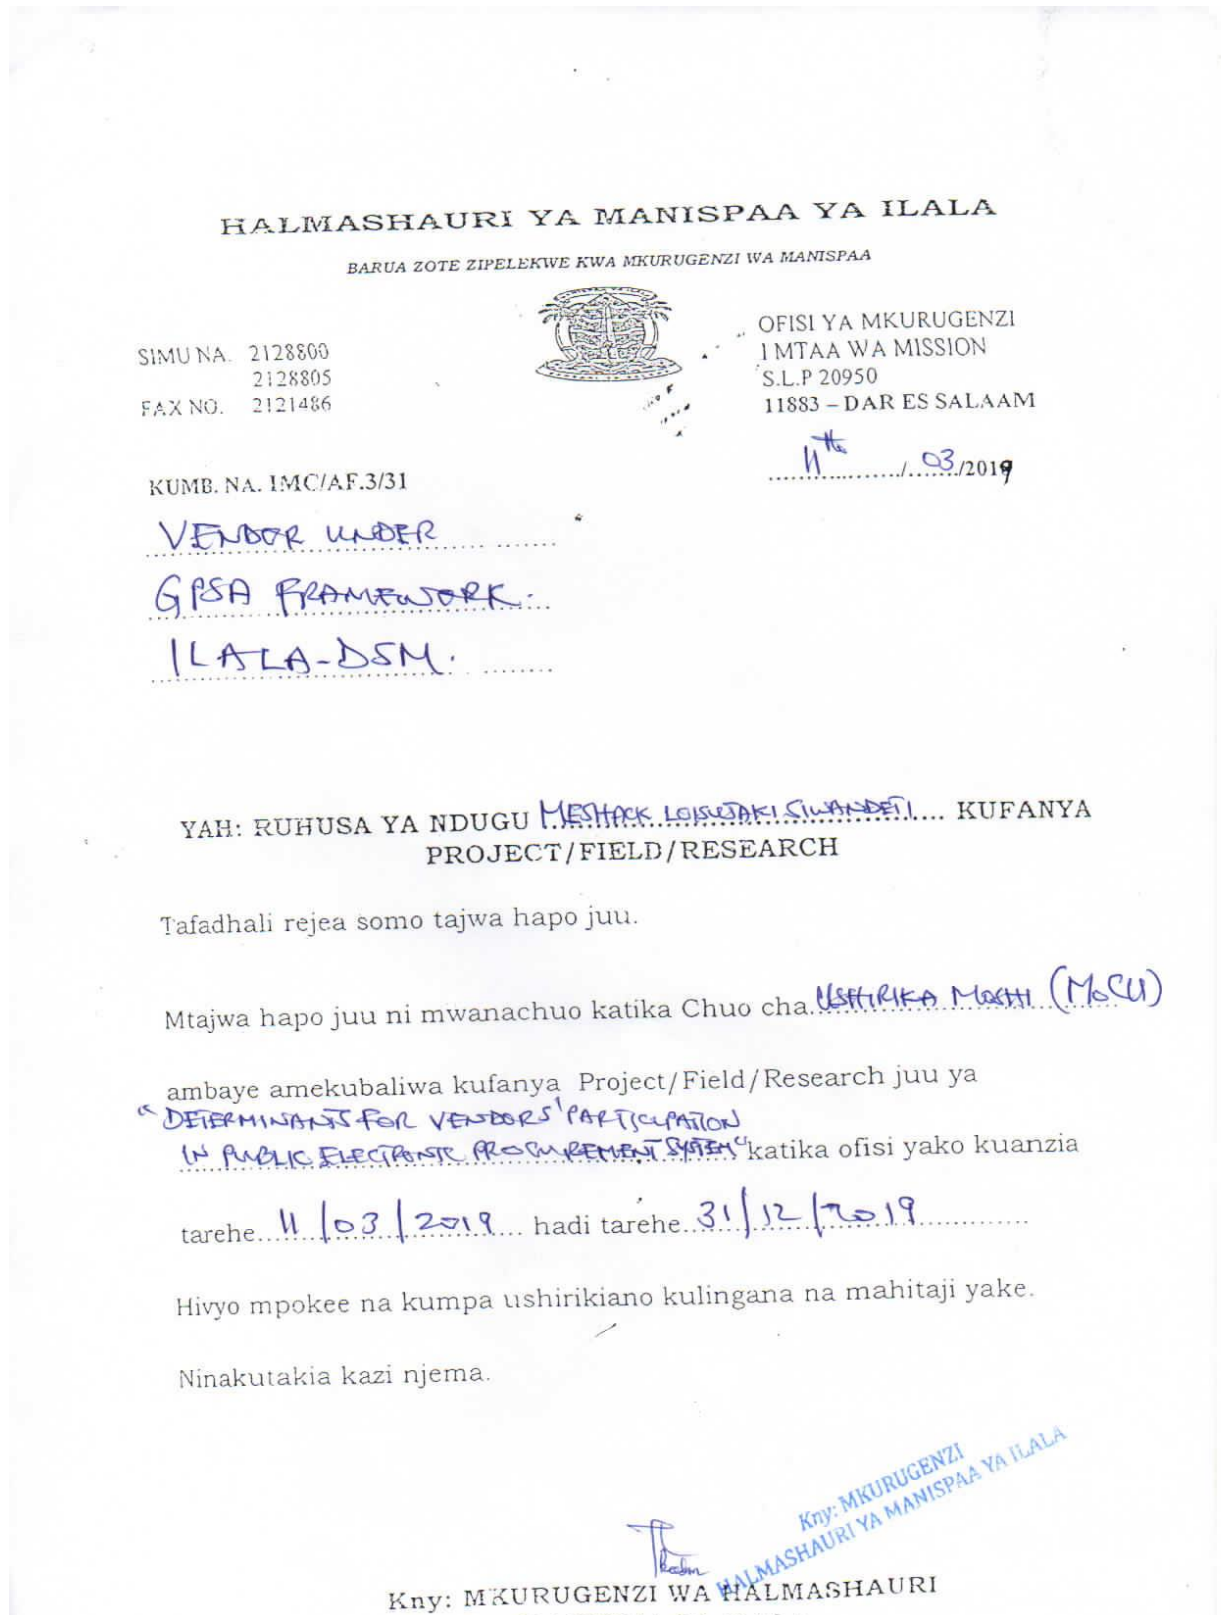 HALMASHAURI YA MANISPAA YA ILALA
BARUA ZOTE ZIPELEKWE KWA MKURUGENZI WA MANISPAA
SIMU NA. 2128800
2128805
FAX NO. 2121486
OFISI YA MKURUGENZI
1 MTAA WA MISSION
S.L.P 20950
11883 – DAR ES SALAAM
11th / 03 /2019
KUMB. NA. IMC/AF.3/31
VENDOR UNDER
GPSA FRAMEWORK.
ILALA-DSM.
YAH: RUHUSA YA NDUGU MESHACK LOISUJAKI SIWANDETI.... KUFANYA
PROJECT/FIELD/RESEARCH
Tafadhali rejea somo tajwa hapo juu.
Mtajwa hapo juu ni mwanachuo katika Chuo cha. USHIRIKA MOSHI (MoCU)
ambaye amekubaliwa kufanya Project/Field/Research juu ya
"DETERMINANTS FOR VENDORS' PARTICIPATION
IN PUBLIC ELECTRONIC PROCUREMENT SYSTEM" katika ofisi yako kuanzia
tarehe... 11/03/2019... hadi tarehe.. 31/12/2019............
Hivyo mpokee na kumpa ushirikiano kulingana na mahitaji yake.
Ninakutakia kazi njema.
Kny: MKURUGENZI
HALMASHAURI YA MANISPAA YA ILALA
Kny: MKURUGENZI WA HALMASHAURI